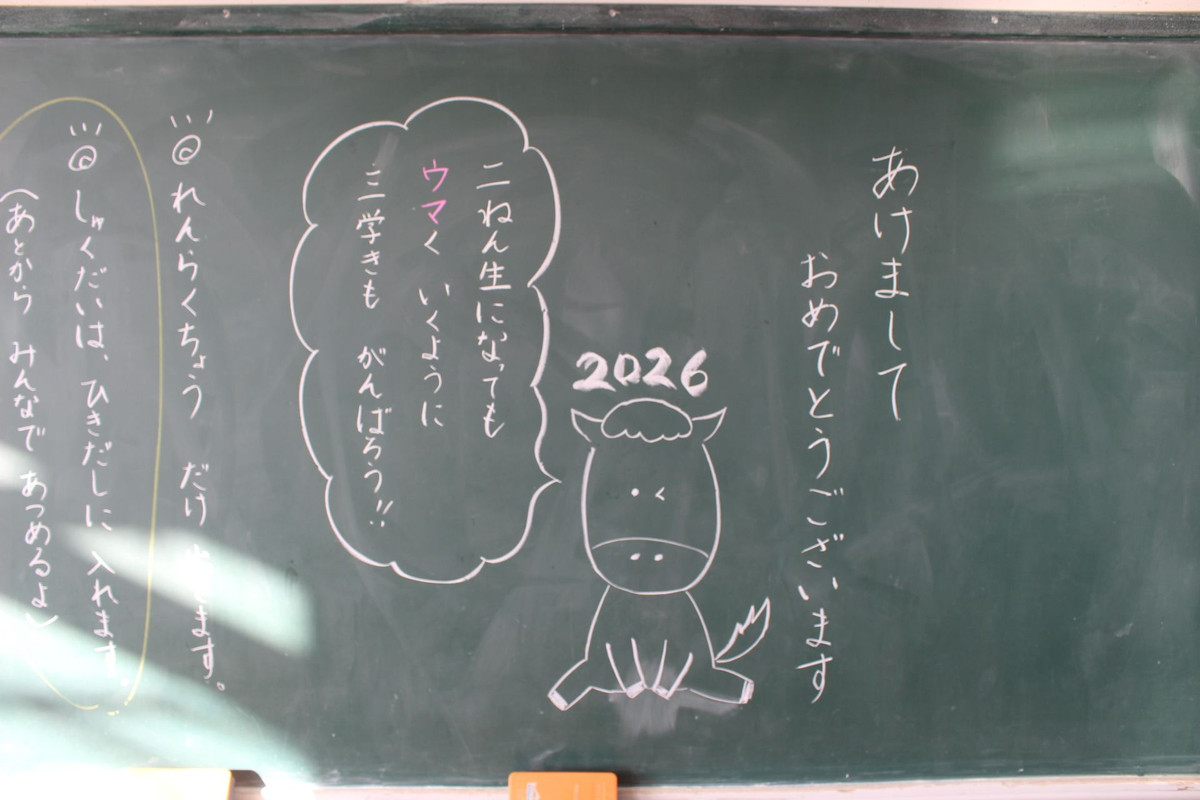 あけまして
おめでとうございます
2026
二ねん生になっても
ウマく いくように
三学きも がんばろう!!
◎れんらくちょう だけ 出します。
◎しゅくだいは、ひきだしに 入れます。
(あとから みんなで あつめるよ)